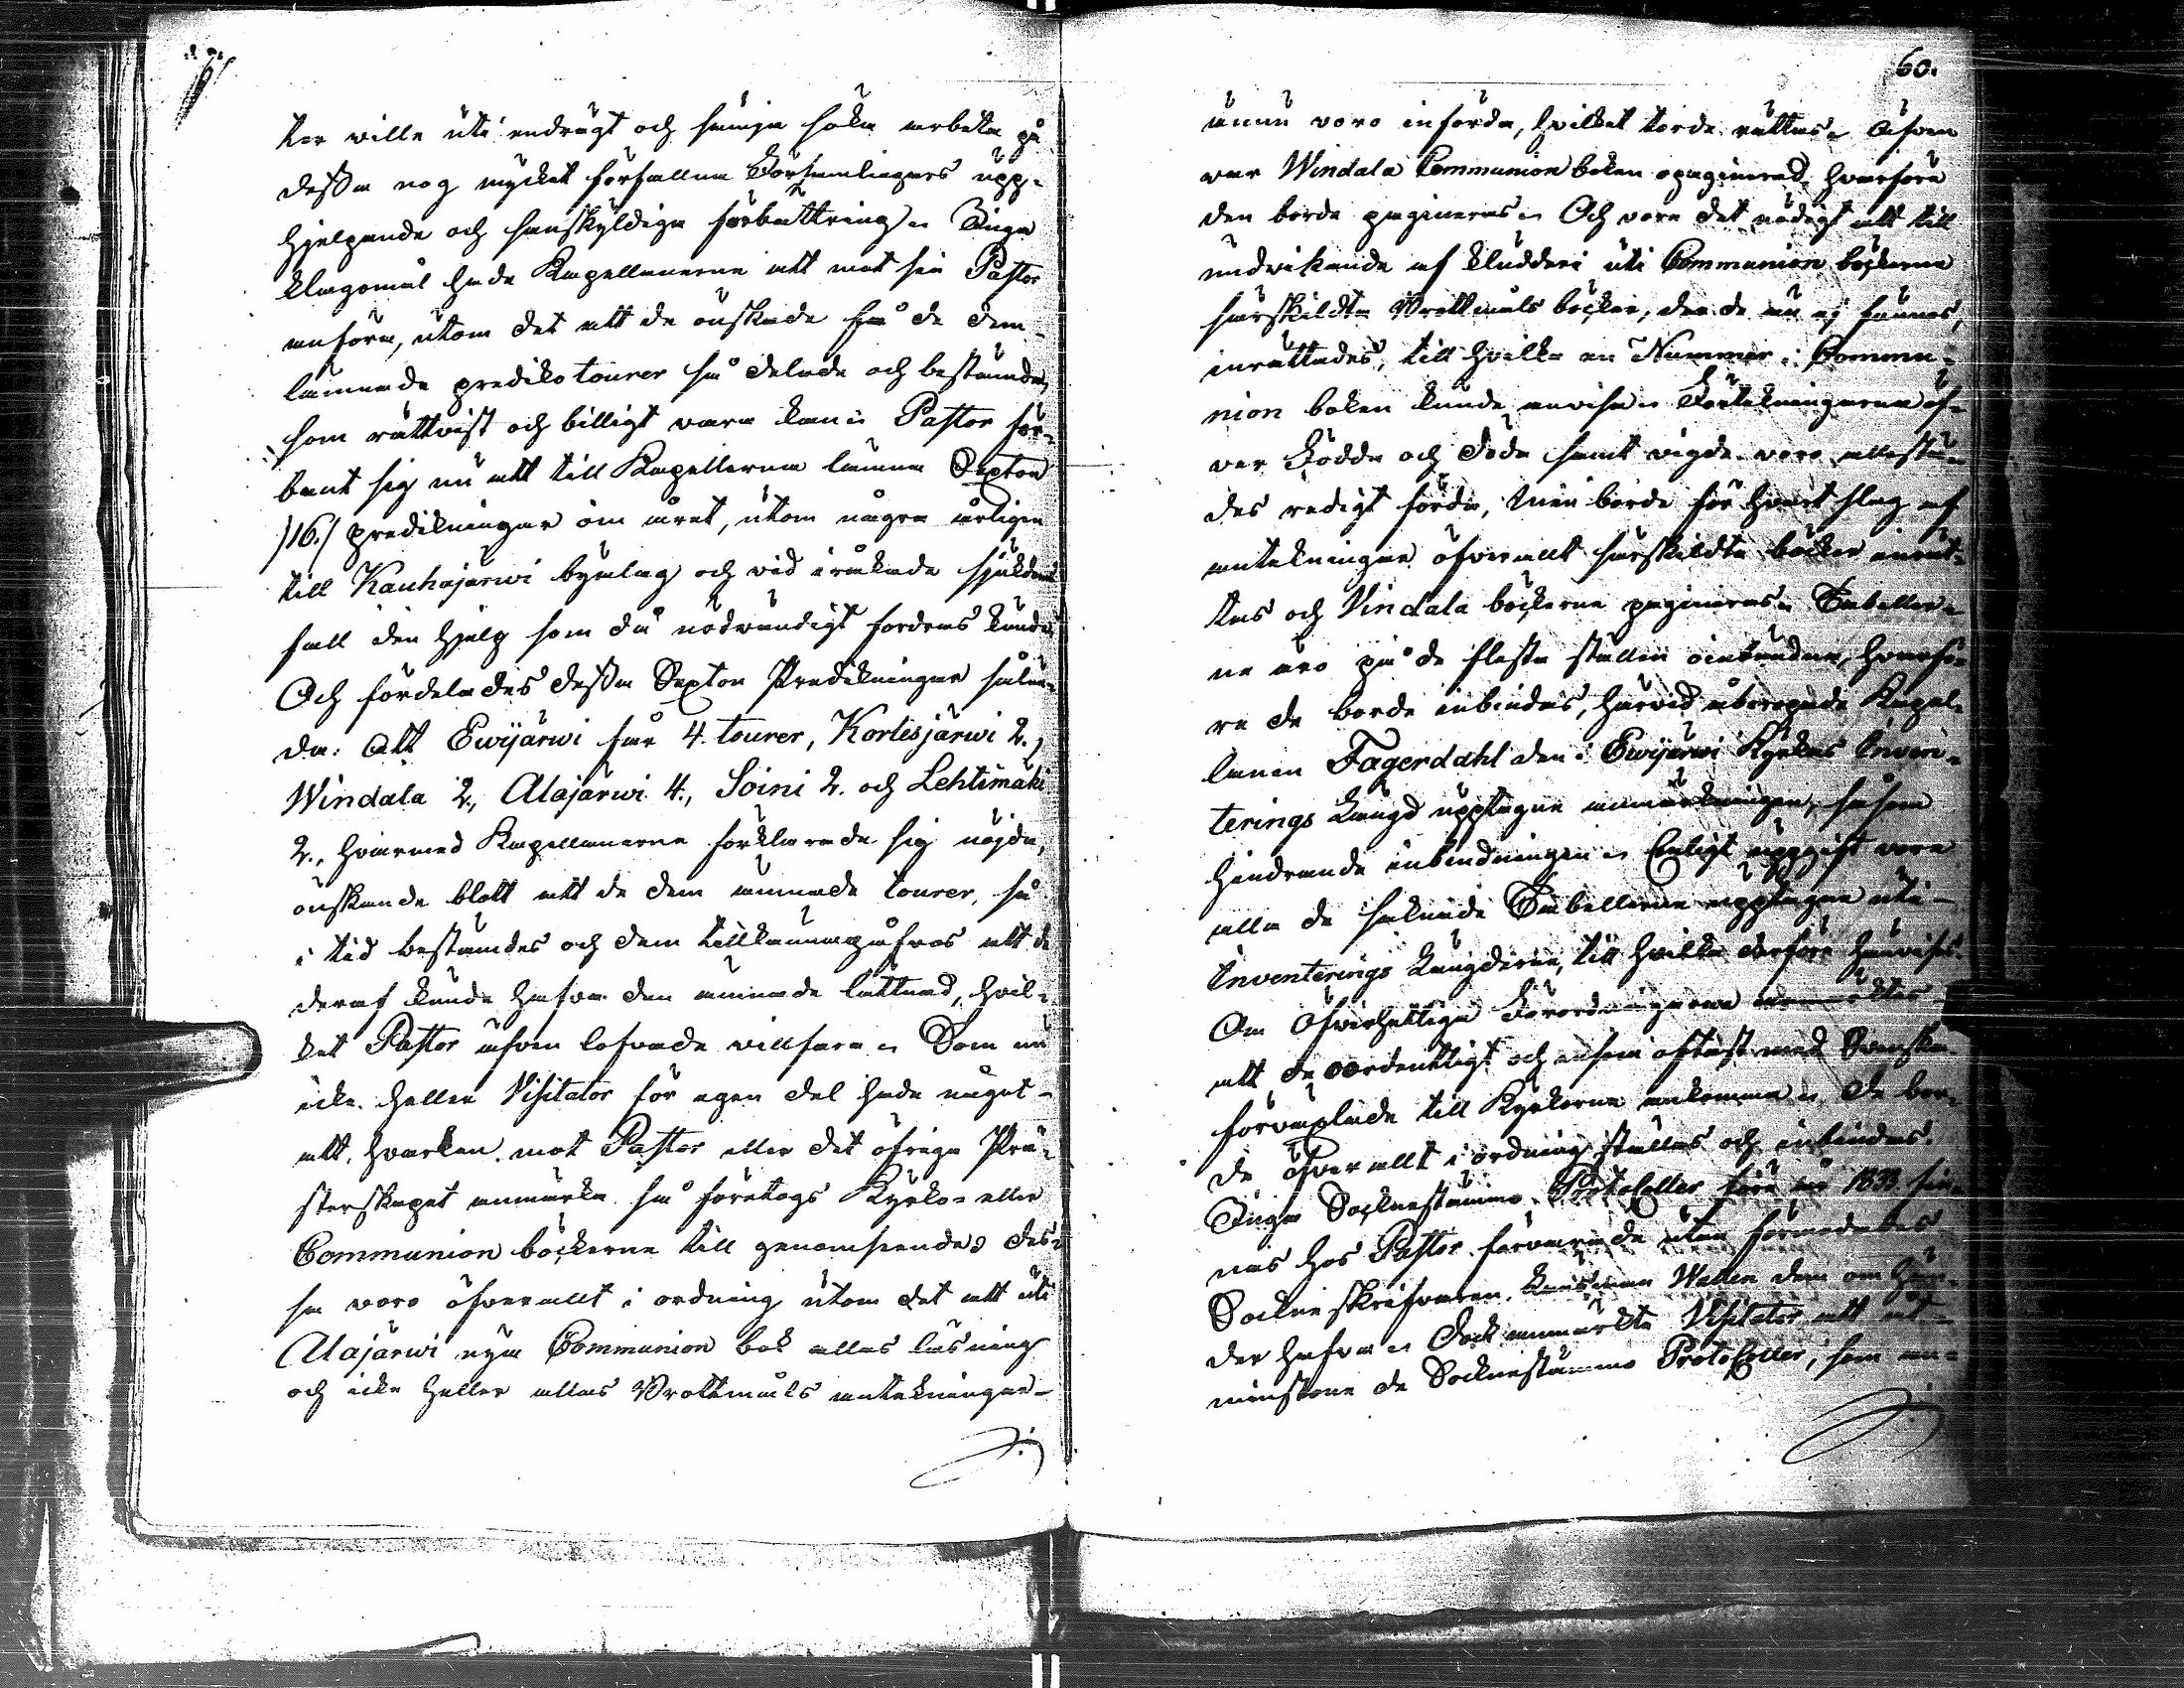 ter wille uti endrägt och sämja söka arbeta på
dessa nog mycket förfallna Församlingars upp-
hjelpande och sanskyldiga förbättring. Inga
klagomål hade Kapellanerne att mot sin Pastor
anföra, utom det att de önskade få de dem
lämnade predikotourer så delade och bestämda,
som rättvist och billigt vara kan. Pastor för-
bant sig nu att till Kapellerna lämna Sexton
/16./ predikningar om året, utom några årligen
till Kauhajärwi byalag och vid iråkade sjukdoms
fall den hjelp som då nödvändigt fordras kunde
Och fördelades dessa Sexton Predikningar sålun-
da: Att Ewijärwi får 4. tourer, Kortesjärwi 2.,
Windala 2., Alajärwi 4., Soini 2. och Lehtimäki
2., hvarmed Kapellanerne förklarade sig nöjda,
önskande blott att de dem ämnade tourer, så
i tid bestämdes och dem tillkännagåfvos att de
deraf kunde hafva den ämnade lättnad, hvil-
ket Pastor äfven lofvade villfara. Som nu
icke heller Visitator för egen del hade något
att, hvarken mot Pastor eller det öfriga Prä-
sterskapet anmärka så företogs Kyrko- eller
Communion böckerne till genomseende; des-
sa voro öfverallt i ordning utom det att uti
Alajärwi nya Communion bok allas läsning
och icke heller allas Brottmåls antekningar
60.
ännu voro införda, hvilket torde rättas. Äfven
var Windala Communion boken opaginerad, hvarföre
den borde pagineras. Och vore det nödigt att till
undvikande af kludderi uti Communion böckerna
särskildta Brottmåls böcker, der de nu ej funnes,
inrättades, till hvilka en Nummer i Commu-
nion boken kunde anvisa. Förtekningarna öf-
ver Födde och Döde samt vigde voro allestä-
des redigt förda, men borde för hvart slag af
antekningar öfverallt särskildta böcker inrät-
tas och Vindala böckerne pagineras. Tabeller-
ne äro på de flesta ställen oinbundna, hvarfö-
re de borde inbindas, härvid åberopade Kapel-
lanen Fagerdahl den i Ewijärwi Kyrkas Inven-
terings Längd upptagne anmärkningen, såsom
hindrande inbindningen. Enligt uppgift vore
alla de saknade Tabellerne upptagne uti
Inventerings Längderne, till hvilka derföre hänvises
Om Öfverhetliga Förordningarna
att de oordentligt och oftast med Svenska
förvexlade till Kyrkorne ankomma. De bor-
de öfverallt i ordning ställas och inbindas.
Inga Sockenstämmo Protocoller före år 1833 fin-
nas hos Pastor förvarade utan förmodades
Sockneskrifvaren Länsman Wallin dem om hän-
der hafva. Dock anmärkte Visitator att åt-
minstone de Socknestämmo Protocoller, som an-